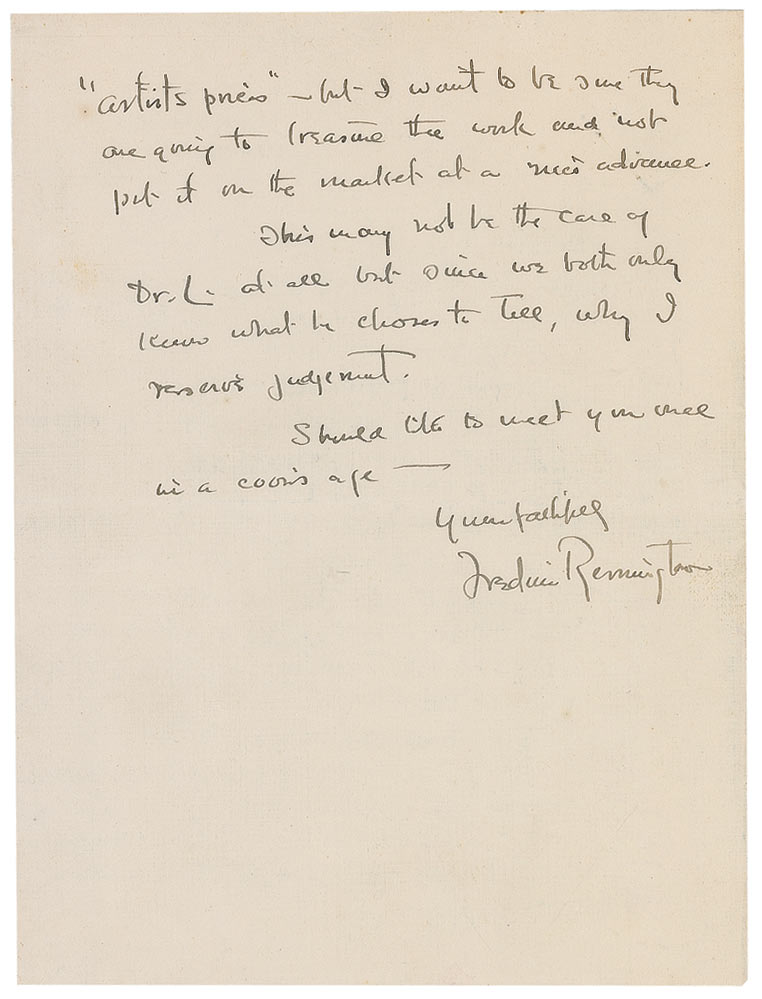 "artists prices" — but I want to be sure they
are going to treasure the work and not
put it on the market at a nice advance.
This may not be the case of
Dr. L— at all but since we both only
know what he choses to tell, why I
reserve judgement.
Should like to meet you once
in a coon's age —
Yours faithfully
Frederic Remington